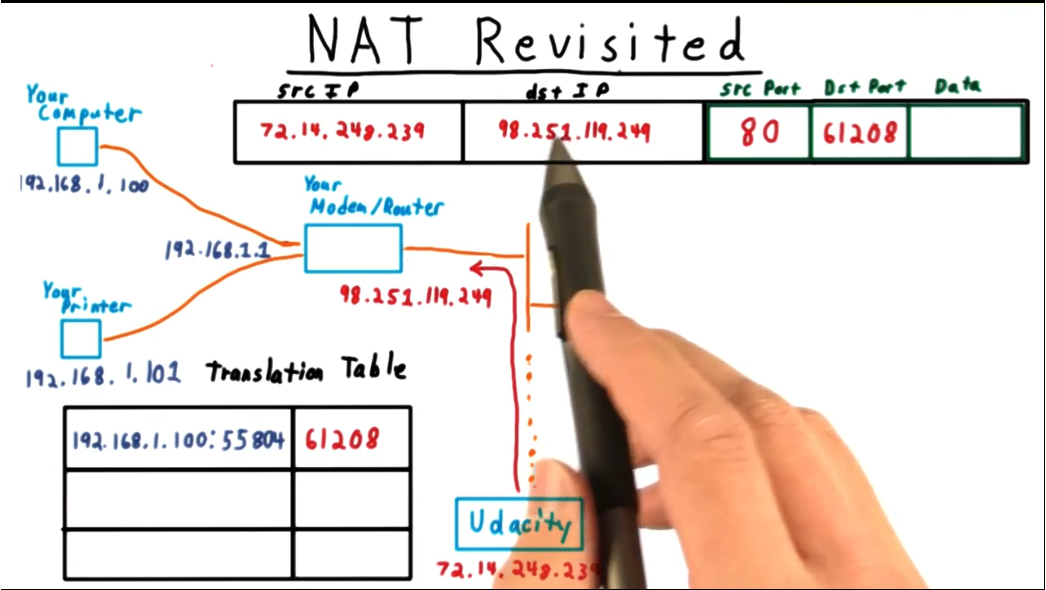 NAT Revisited
src IP dst IP Src Port Dst Port Data
72.14.248.239 98.251.119.249 80 61208
Your
Computer
192.168.1.100
Your
Modem/Router
192.168.1.1
98.251.119.249
Your
Printer
192.168.1.101
Translation Table
192.168.1.100:55804 61208
Udacity
72.14.248.239